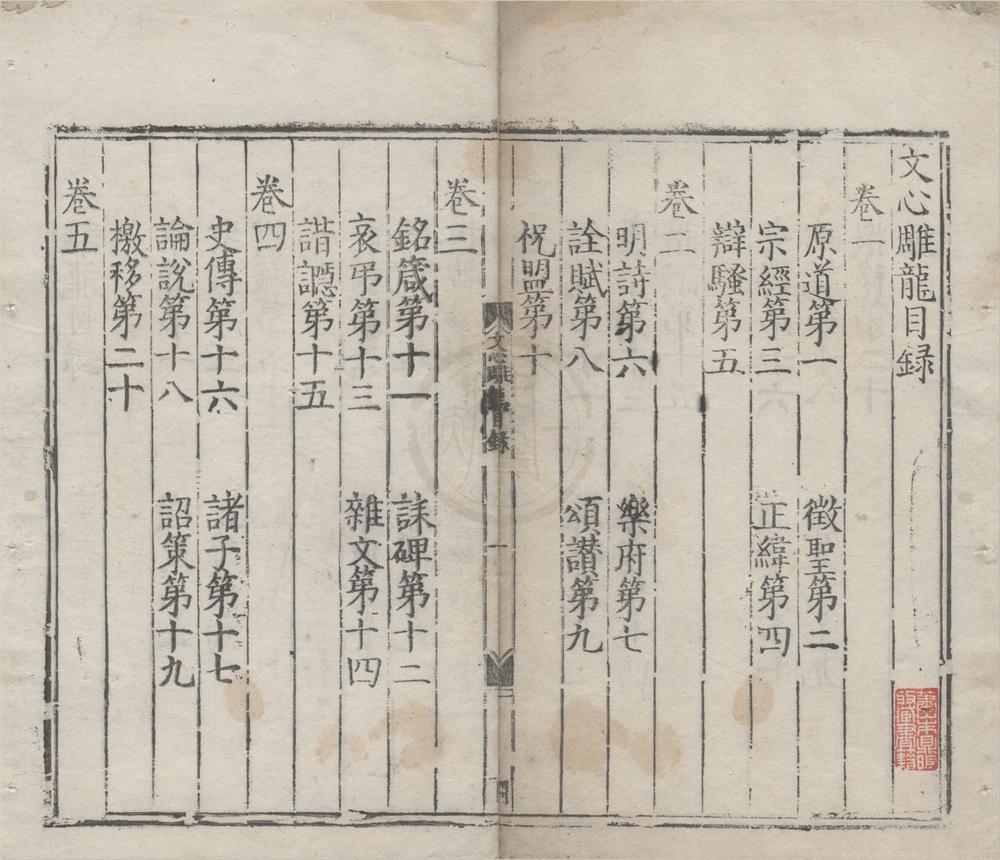 文心雕龍目録
卷一
原道第一　徵聖第二
宗經第三　正緯第四
辯騷第五
卷二
明詩第六　樂府第七
詮賦第八　頌讚第九
祝盟第十
文心雕龍目録　一
卷三
銘箴第十一　誄碑第十二
哀弔第十三　雜文第十四
諧讔第十五
卷四
史傳第十六　諸子第十七
論說第十八　詔策第十九
檄移第二十
卷五